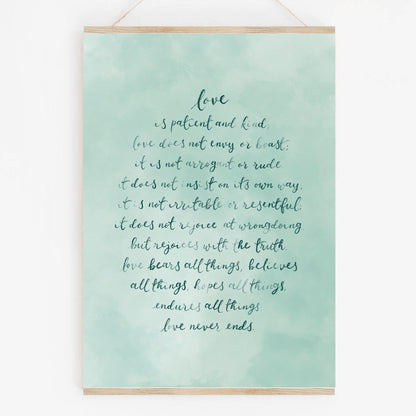 love
is patient and kind;
love does not envy or boast;
it is not arrogant or rude.
it does not insist on it's own way,
it is not irritable or resentful;
it does not rejoice at wrongdoing
but rejoices with the truth.
love bears all things, believes
all things, hopes all things,
endures all things.
love never ends.